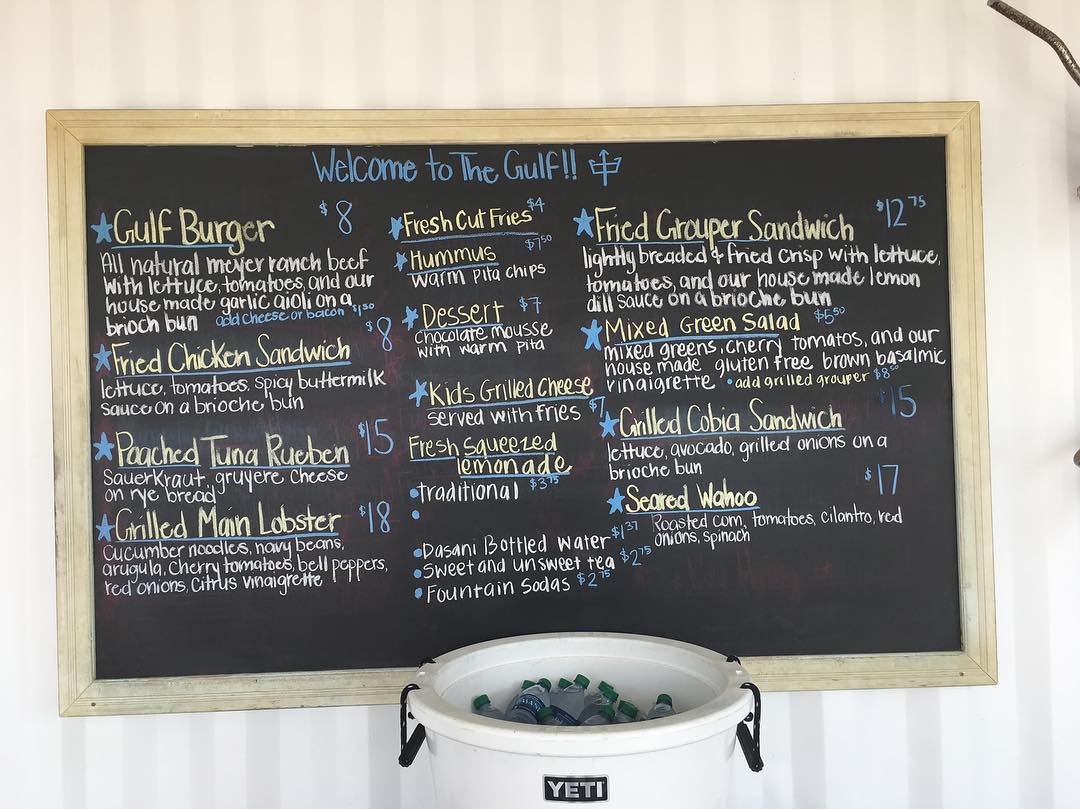 Welcome to The Gulf!!
Gulf Burger $8
All natural meyer ranch beef
with lettuce, tomatoes, and our
house made garlic aioli on a
brioch bun add cheese or bacon $1.50
Fried Chicken Sandwich $8
lettuce, tomatoes, spicy buttermilk
sauce on a brioche bun
Poached Tuna Rueben $15
Sauerkraut, gruyere cheese
on rye bread
Grilled Main Lobster $18
Cucumber noodles, navy beans,
arugula, cherry tomatoes, bell peppers,
red onions, citrus vinaigrette
Fresh Cut Fries $4
Hummus $7.50
warm pita chips
Dessert $7
chocolate mousse
with warm pita
Kids Grilled Cheese
served with fries $7
Fresh squeezed
lemonade
• traditional $3.75
•
• Dasani Bottled water $1.37
• Sweet and unsweet tea $2.75
• Fountain sodas $2.75
Fried Grouper Sandwich $12.75
lightly breaded & fried crisp with lettuce,
tomatoes, and our house made lemon
dill sauce on a brioche bun
Mixed Green Salad $5.50
mixed greens, cherry tomatos, and our
house made gluten free brown basalmic
vinaigrette • add grilled grouper $8.50
Grilled Cobia Sandwich $15
lettuce, avocado, grilled onions on a
brioche bun
Seared Wahoo $17
Roasted corn, tomatoes, cilantro, red
onions, spinach
YETI